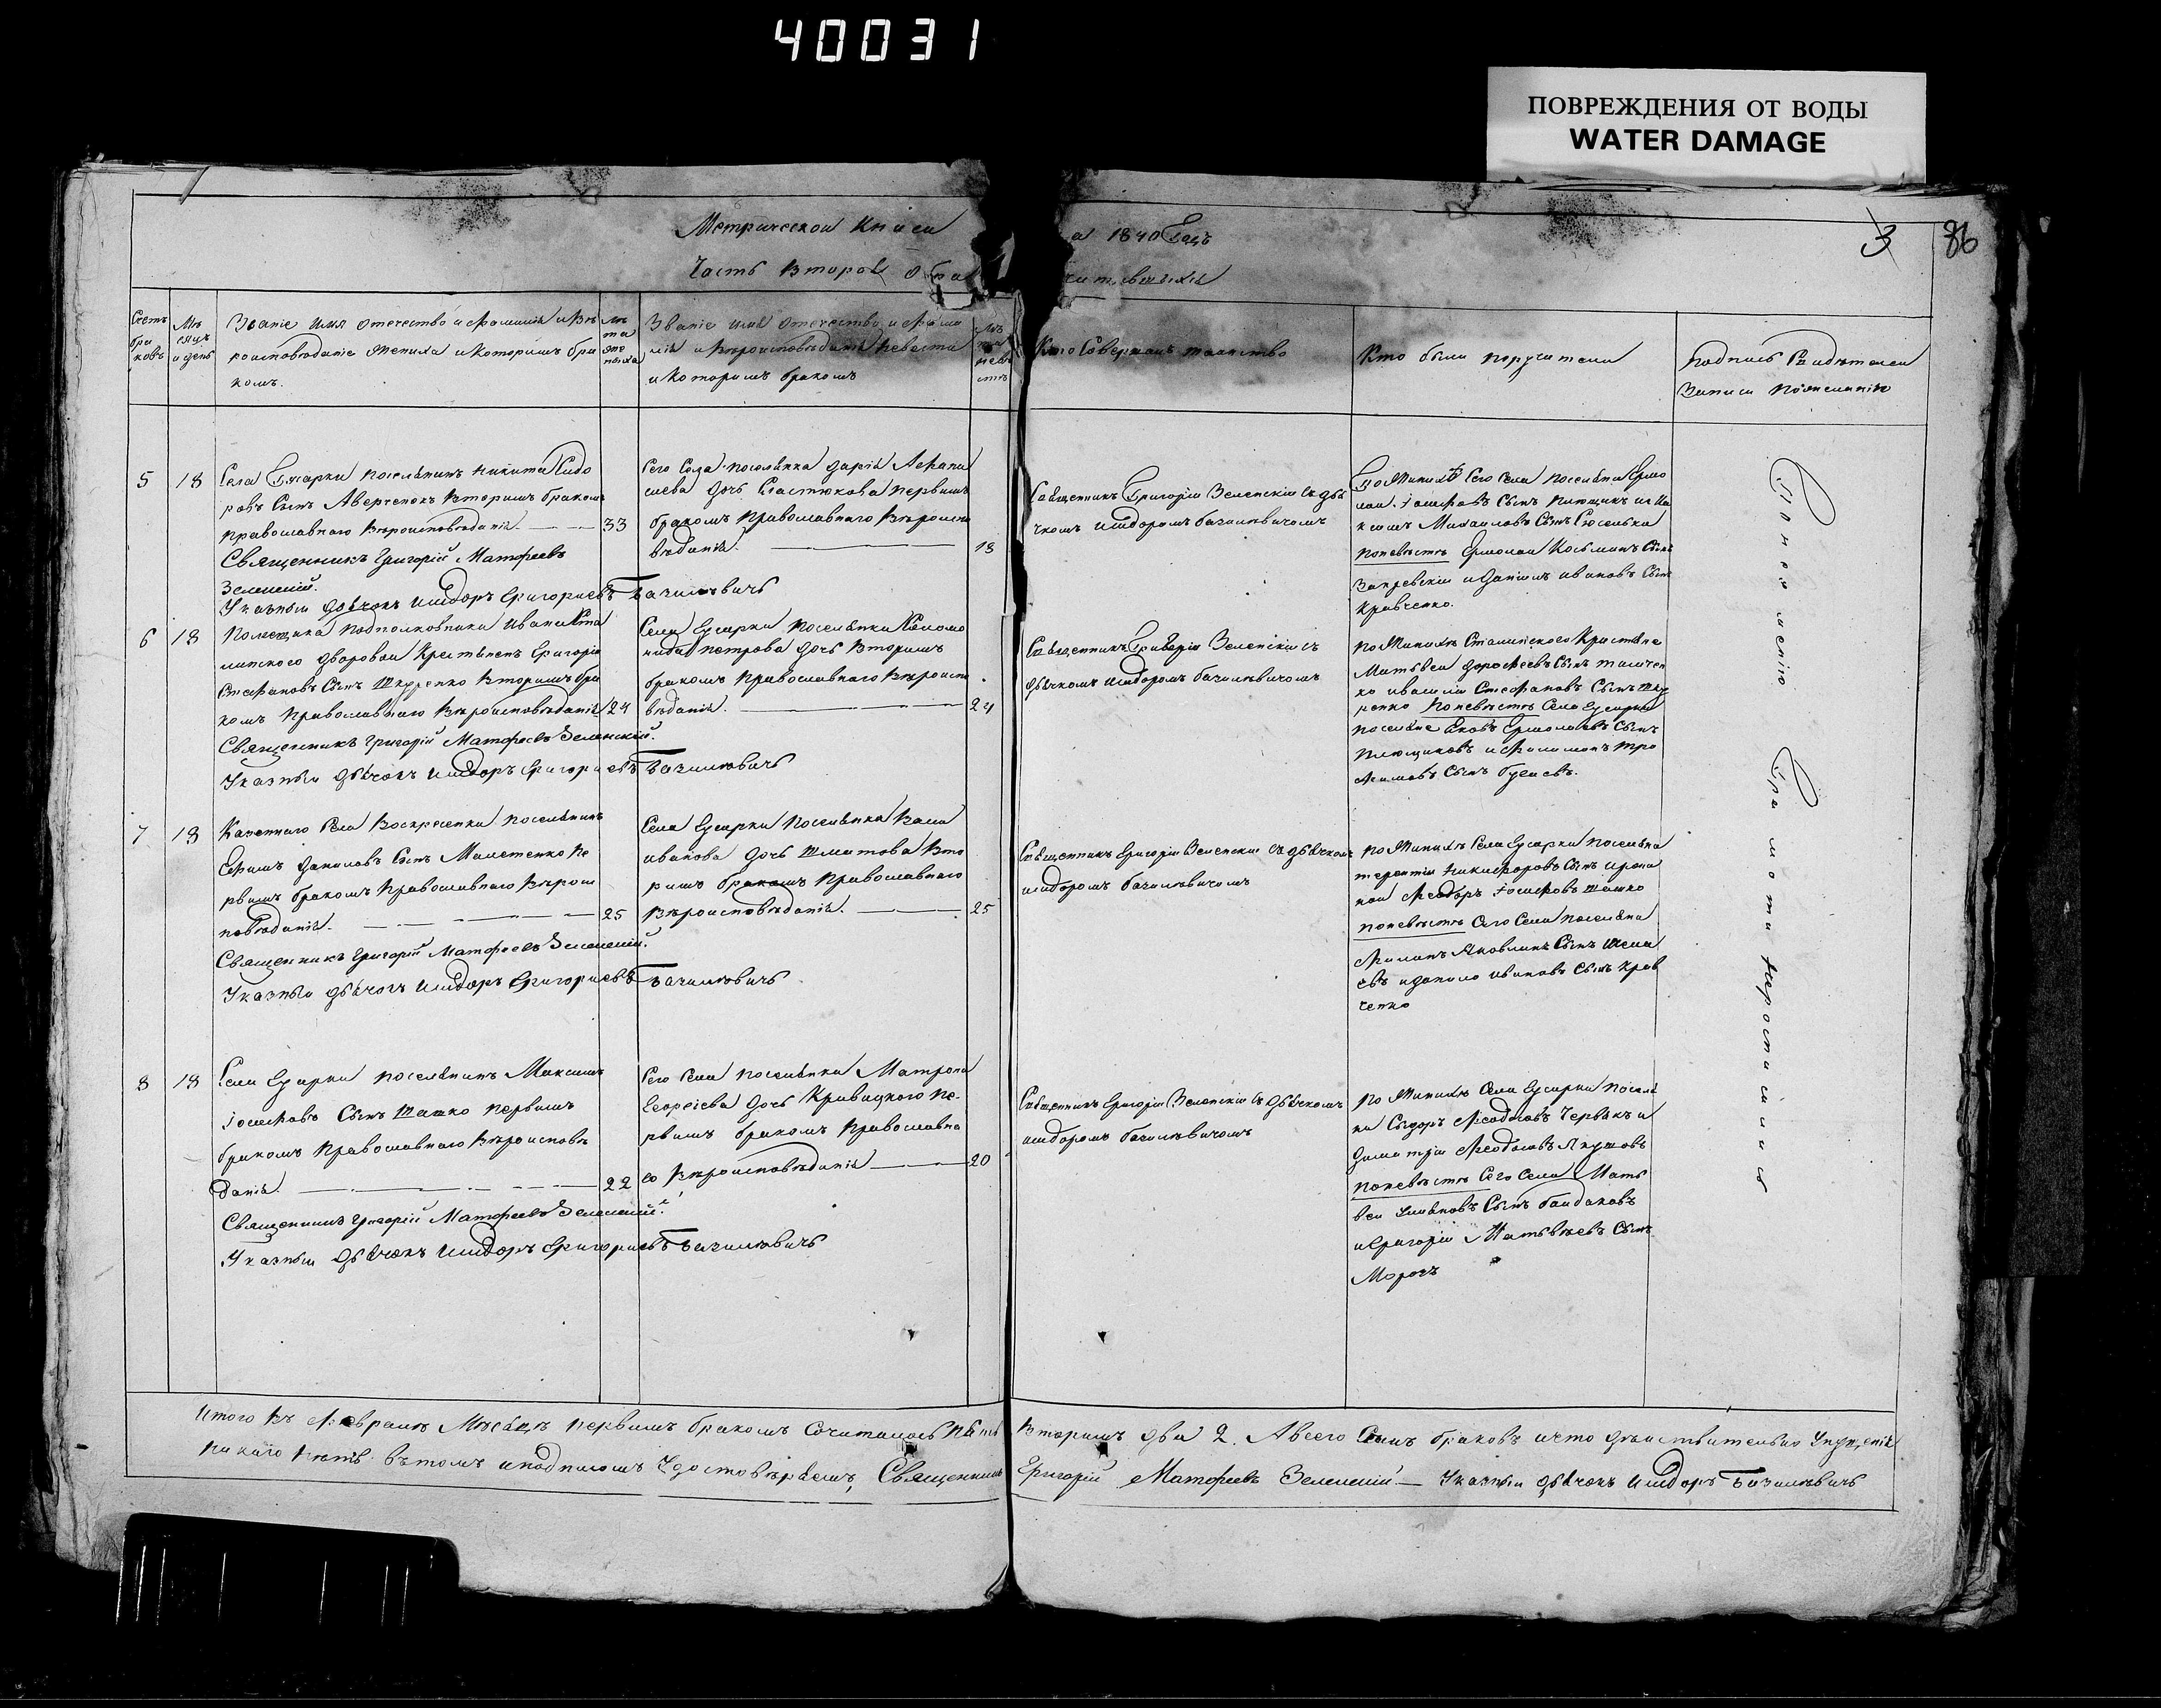 40031
ПОВРЕЖДЕНИЯ ОТ ВОДЫ
WATER DAMAGE
Метрической книги
а 1840 Годъ
3
86
Часть вторая о бра
Счетъ бра ковъ
Мѣ сяцъ и день
Званіе имя отечество и фамилія и вѣ
роисповѣданіе жениха и которимъ бра
комъ.
лѣ та же ниха
Званіе имя отечество и фами
лія и вѣроисповѣданіе невѣсти
и которимъ бракомъ
лѣ та невѣ стѣ
Кто совершалъ таинство
Кто были поручители
подпись свидѣтелей
записи по желанію
5
18
Села Гусарки поселянинъ Никита Сидо
ровъ сынъ Аверченокъ вторимъ бракомъ
православнаго вѣроисповѣданія.
33
Священникъ Григорій Матфеевъ
Зеленскій.
Указный дьячокъ Исидоръ Григориевъ Базилевичъ
Сего села поселянка Дарія Афана
сиева дочь Сластюкова первимъ
бракомъ православнаго вѣроиспо
вѣданія.
18
Священникъ Григорій Зеленскій съ дья
чкомъ Исидоромъ Базилевичомъ
по женихѣ сего села поселяни Ермо
лай Іосифовъ сынъ
кимъ Михаиловъ сынъ
по невѣстѣ Ермолай Косьминъ сынъ
Закревскій и Даніилъ Ивановъ сынъ
Кравченко.
6
18
Помещика подполковника Ивана Ста
линского дворовой крестьненъ Григорій
Стефановъ сынъ Шкуренко вторимъ бра
комъ православнаго вѣроисповѣданія
24
Священникъ Григорій Матфеевъ Зеленский.
Указный дьячокъ Исидоръ Григориевъ Базилевичъ
Села Гусарки поселянка Соломо
нида Петрова дочь вторимъ
бракомъ православнаго вѣроиспо
вѣданія.
24
Священникъ Григорій Зеленскій съ
дьячкомъ Исидоромъ Базилевичомъ
по женихѣ Сталинского крестьяне
Матвей Дорофеевъ сынъ
ко и Василій Стефановъ сынъ Шку
ренко по невѣстѣ села Гусарки
поселяне Яковъ Ермолаевъ сынъ
и Филимонъ Тро
фимовъ сынъ
7
18
Казенного села Воскресенки поселянинъ
Ефимъ Даниловъ сынъ Маметенко пе
рвимъ бракомъ православнаго вѣрои
повѣданія.
25
Священникъ Григорій Матфеевъ Зеленский.
Указный дьячокъ Исидоръ Григориевъ Базилевичъ
Села Гусарки поселянка Васа
Иванова дочь Шматова вто
римъ бракомъ православнаго
вѣроисповѣданія.
25
Священникъ Григорій Зеленскій съ дьячкомъ
Исидоромъ Базилевичомъ
по женихѣ села Гусарки поселяна
Терентій Никифоровъ сынъ
Феодоръ Іосифовъ Шашко
по невѣстѣ сего села поселяна
Филипъ Яковлинъ сынъ
евъ и Данило Ивановъ сынъ Крав
ченко
8
18
Села Гусарки поселянинъ Максимъ
Іосифовъ сынъ Шашко первимъ
бракомъ православнаго вѣроисповѣ
данія.
22
Священникъ Григорій Матфеевъ Зеленский.
Указный дьячокъ Исидоръ Григориевъ Базилевичъ
Сего села поселянка Матрона
Георгіева дочь Кривицкого пе
рвимъ бракомъ православна
го вѣроисповѣданія
20
Священникъ Григорій Зеленскій съ дьячкомъ
Исидоромъ Базилевичомъ
по женихѣ села Гусарки поселя
ни Сидоръ Феодоровъ Червякъ и
Димитрій Феодоровъ Якушовъ
по невѣстѣ сего села Мать
вей сынъ Байдаковъ
и Григорій Матьвѣевъ сынъ
Морозъ
По неимѣнію Грамоти Неросписались
Итого въ Февралѣ мѣсяцѣ первимъ бракомъ сочиталось пять
вторимъ два 2. А всего семъ браковъ и что дѣйствительно упущенія
никаго нѣтъ въ томъ и подписомъ удостовѣряемъ, Священникъ
Григорій Матфеевъ Зеленский — Указный дьячокъ Исидоръ Базилевичъ